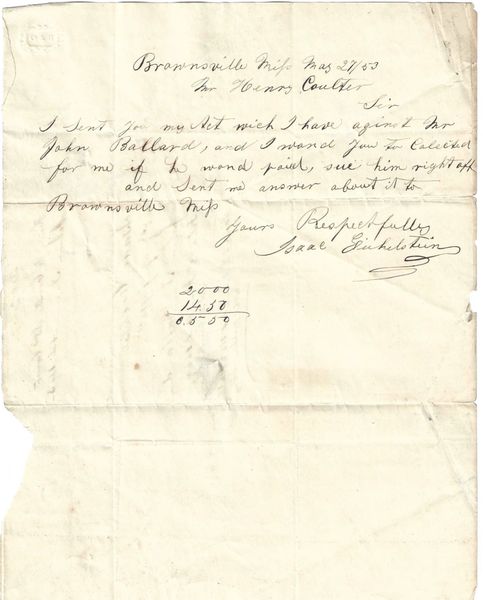 Brownsville Miss May 27/53
Mr Henry Coulter
Sir
I sent you my Act wich I have against Mr
John Ballard, and I wand you to Calected
for me if he wond paid, sue him right off
and sent me answer about it to
Brownsville Miss
Yours Respectfully
Isaac
20 00
14.50
0.5 50